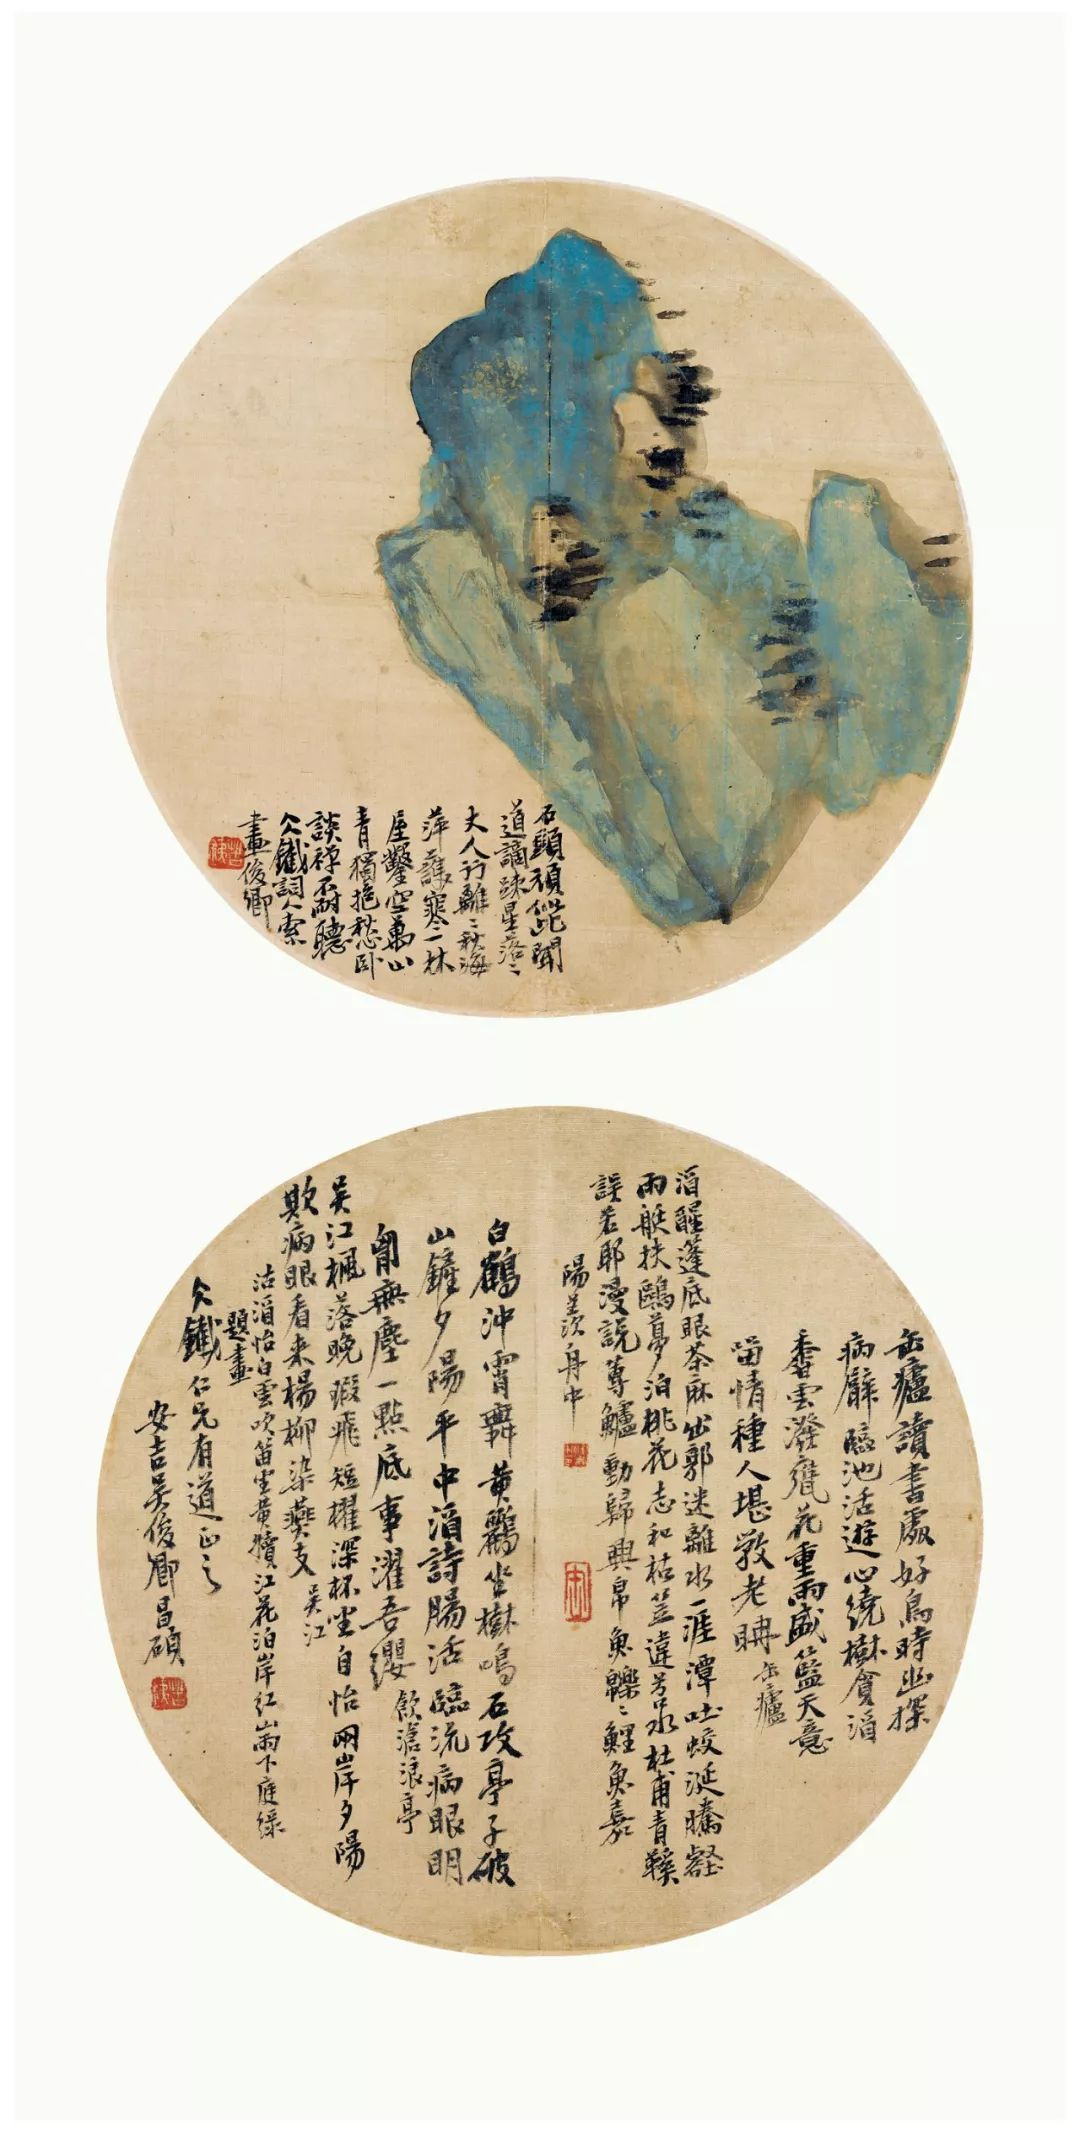 石頭頑能聞
道謫疎星落〻
丈人行離〻秋海
萍護寒一林
屋鑿空萬山
青獨抱愁臥
談禪不耐聽
仌鐵詞人索
畫俊卿
缶廬讀書處好鳥時幽探
病癖臨池活遊心繞樹貪酒
香雲潑甕花重雨盛籃天意
留情種人堪斅老聃 缶廬
酒醒蓬底眼茶麻出郭迷離水一涯潭吐蛟涎騰壑
雨艇扶鷗夢泊桃花志和枯笠違苕水杜甫青鞵
誤若耶漫說蓴鱸動歸興帛魚鱳〻鯉魚嘉
陽羨舟中
白鶴沖霄舞黃鸝坐樹鳴石攻亭子破
山鏟夕陽平中酒詩腸活臨流病眼明
胷無塵一點底事濯吾纓 飲滄浪亭
吳江楓落晚瑕飛短櫂深杯坐自怡兩岸夕陽
欺病眼看来楊柳染燕支 吳江
沽酒怡白雲吹笛坐黃犢江花泊岸紅山雨下庭綠
題畫
仌鐵仁兄有道正之
安吉吳俊卿昌碩